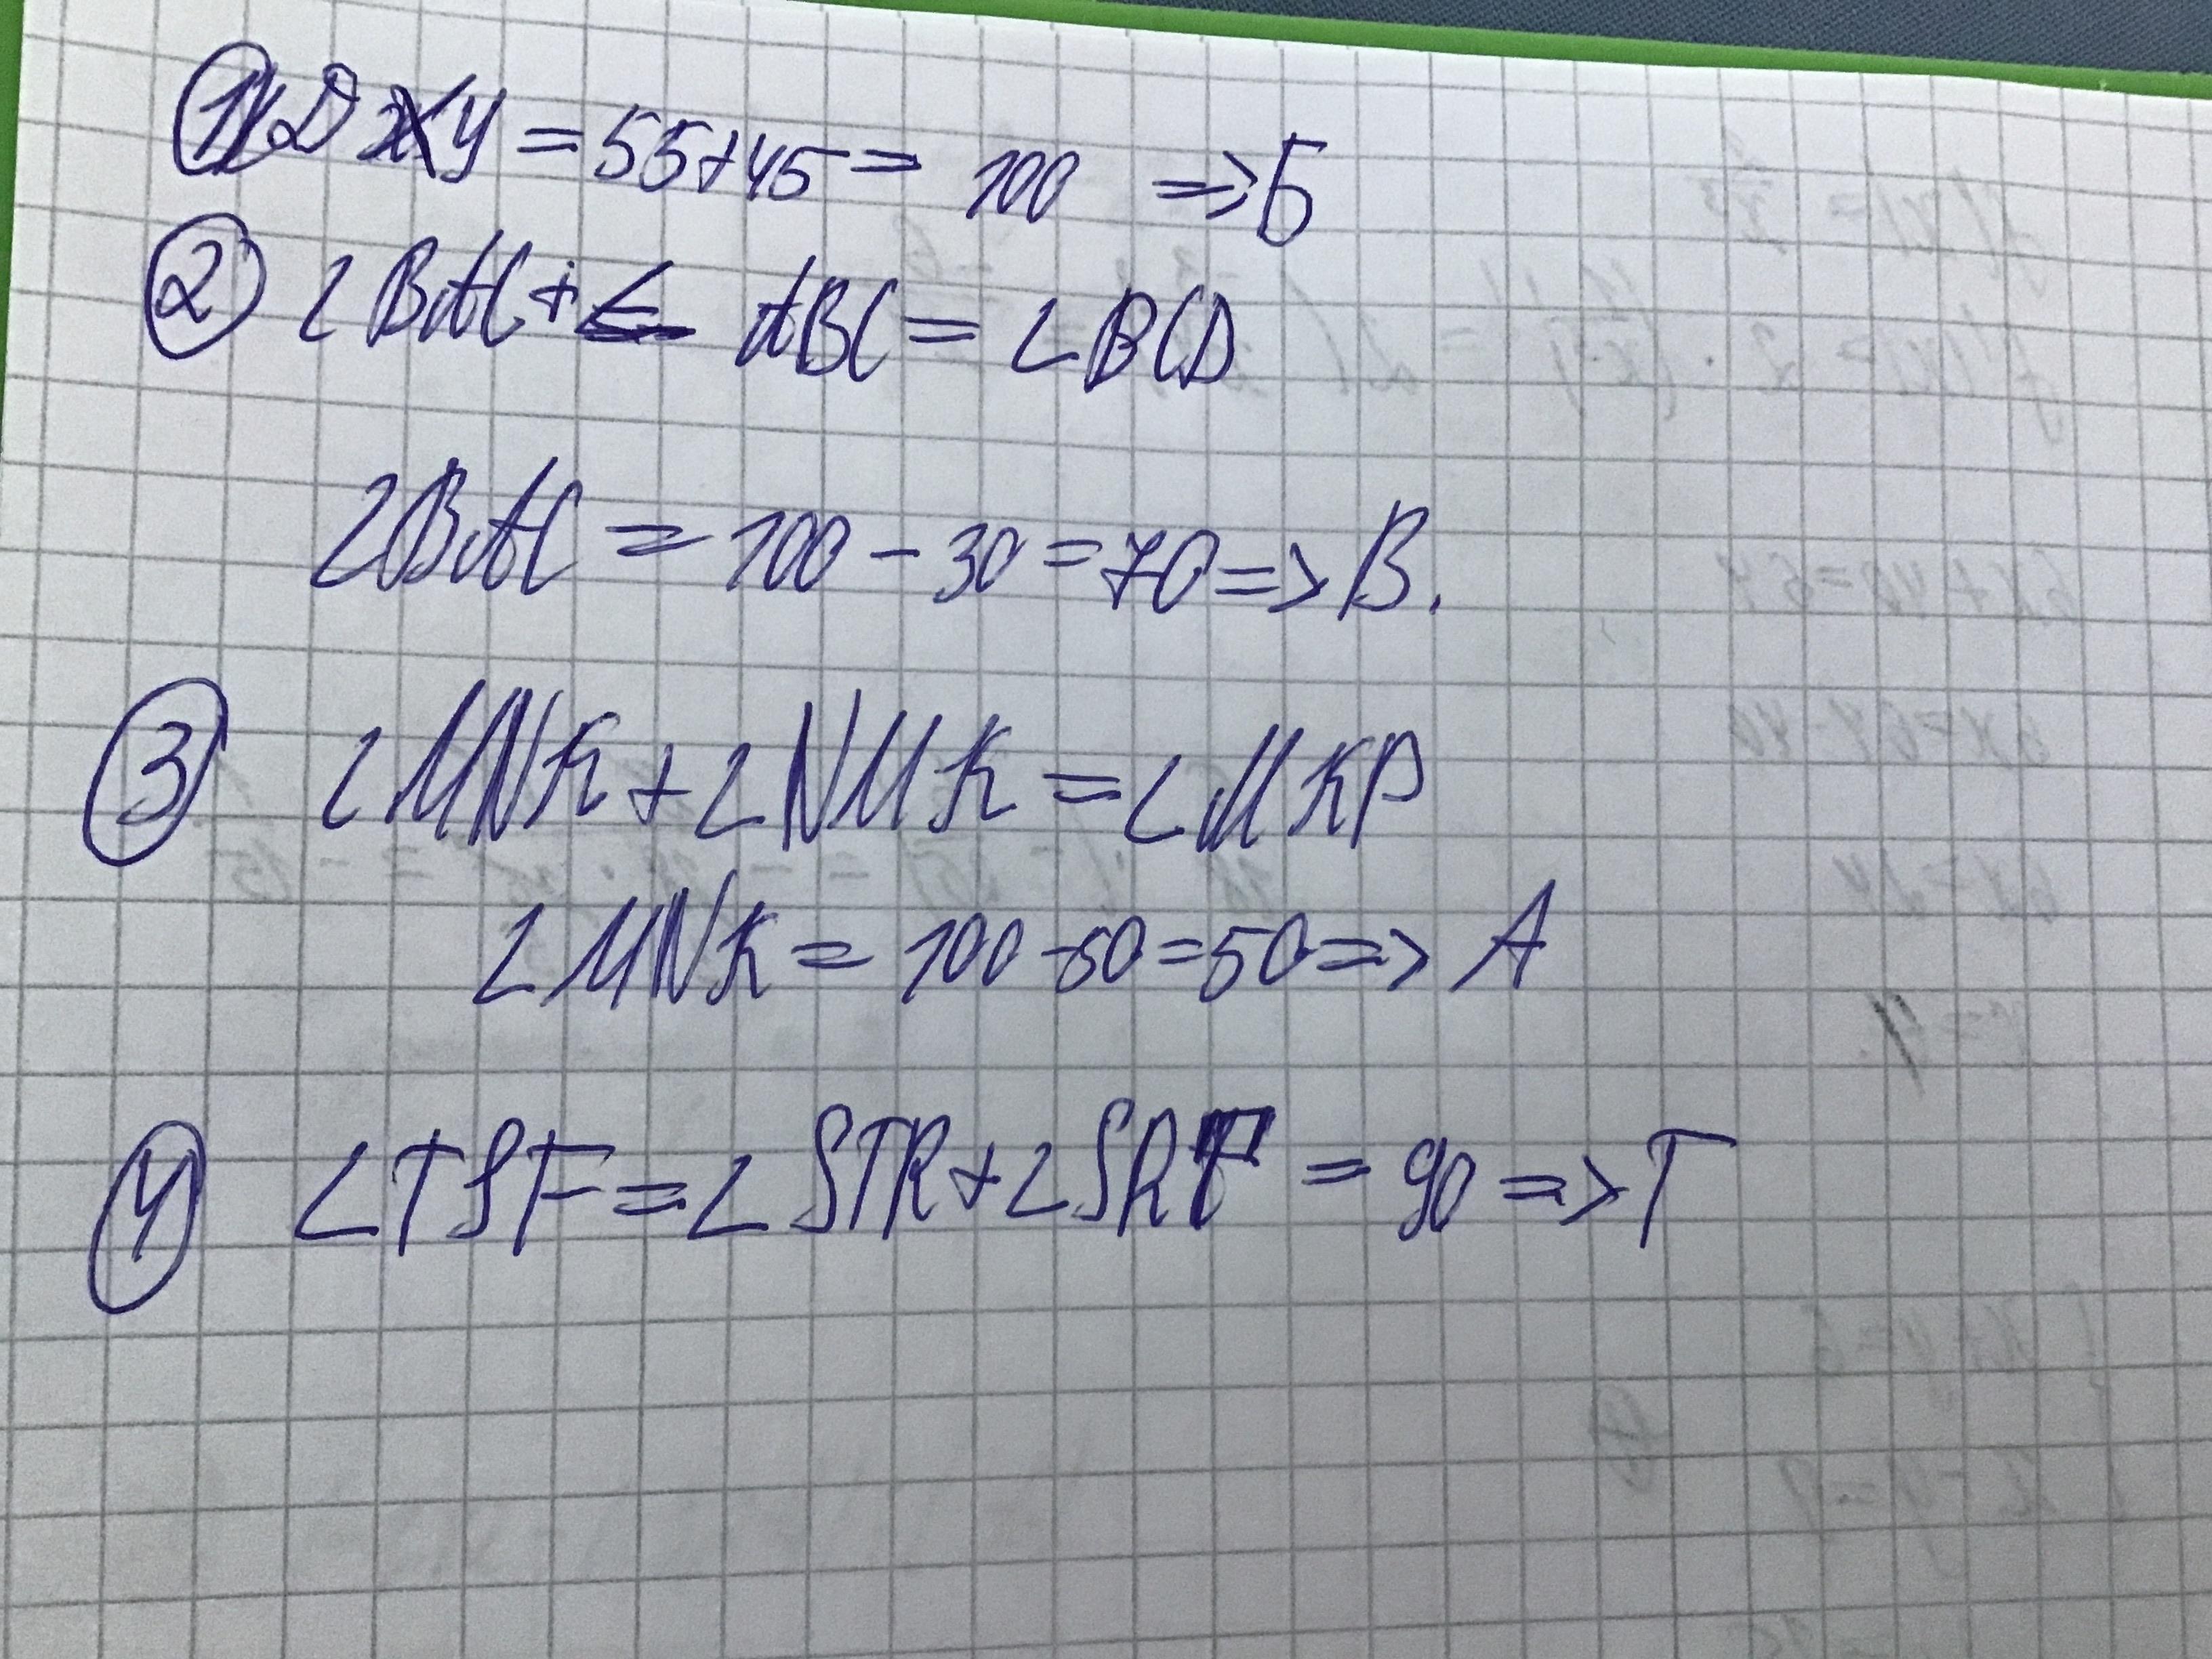 ① ∠DXY = 55+45 = 100 => Б
② ∠BAC + ∠ ABC = ∠BCD
∠BAC = 100 - 30 = 70 => В.
③ ∠MNK + ∠NMK = ∠MKP
∠MNK = 100 - 50 = 50 => А
④ ∠TSF = ∠STR + ∠SRT = 90 => Г